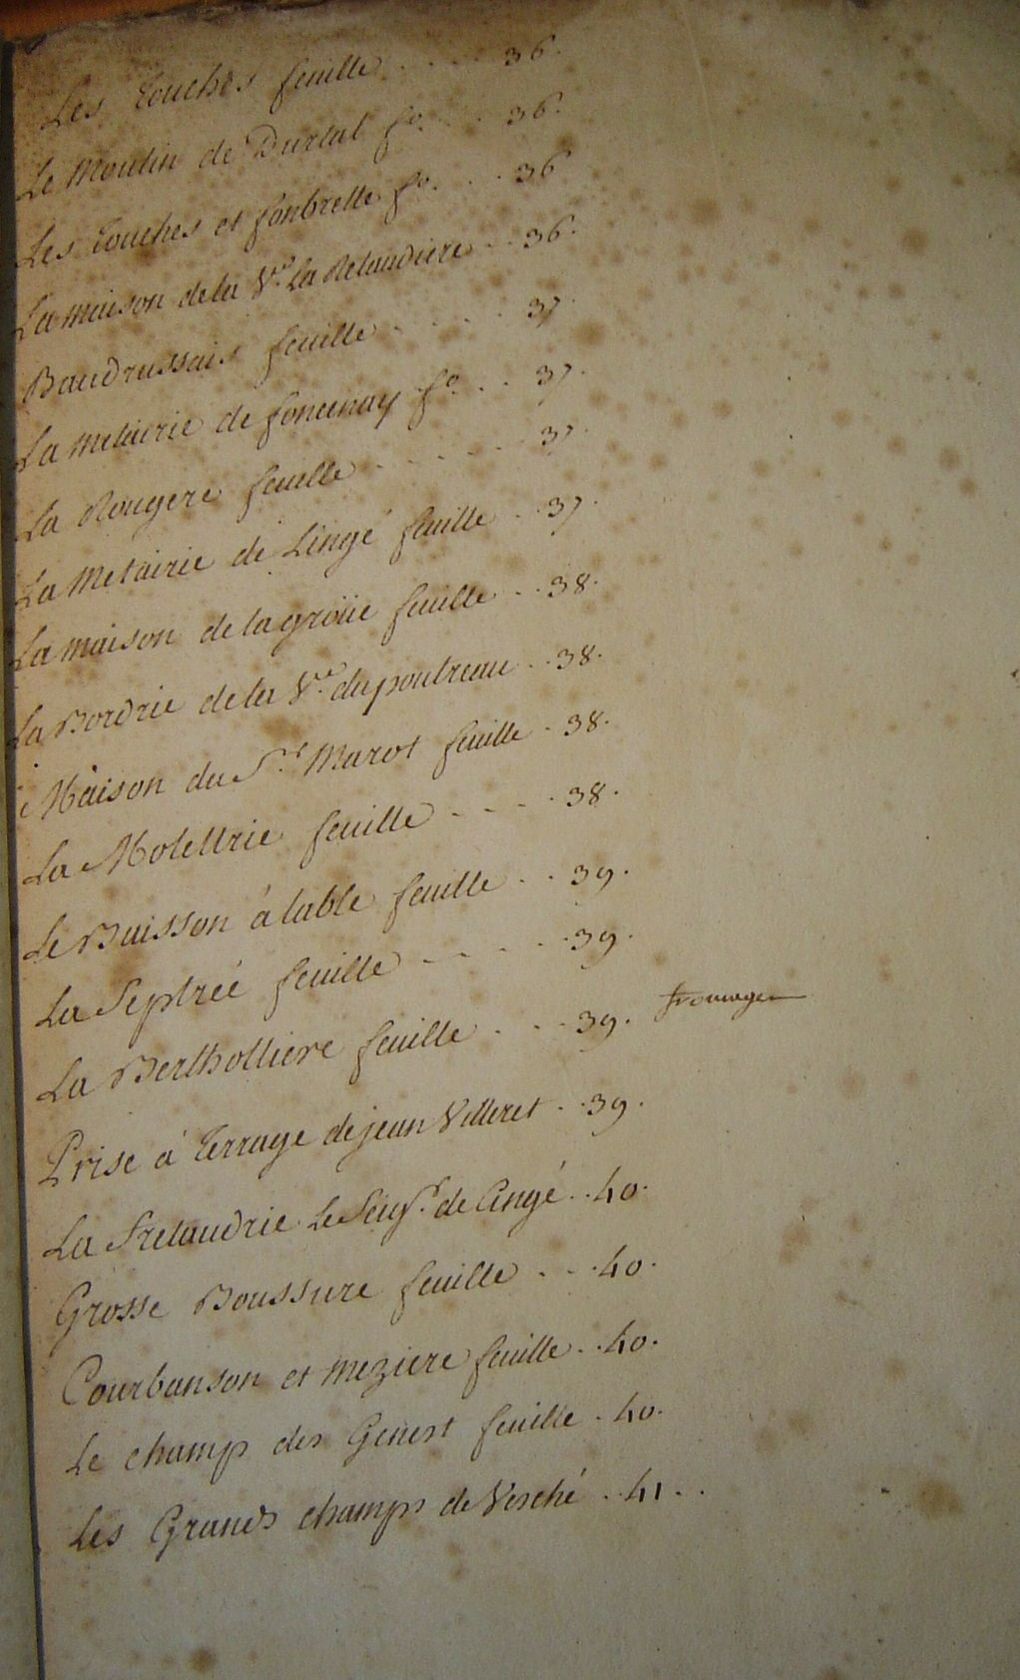 Les Touches feuille . . . . 36.
Le Moulin de Durtal fe. . . . 36.
Les Touches et fonbrette fe. . . . 36
La maison de la Ve. La Relaudiere . . 36.
Baudrussais feuille . . . . . 37.
La metairie de foncenay fe. . . 37.
La Rougere feuelle . . . . . 37.
La Metairie de Lingé feuille . . 37.
La maison de la groüe feuille . . 38.
La Bordrie de la Ve. dupoutreau . . 38.
Maison du Sr. Marot feuille . 38.
La Molettrie feuille . . . . . 38.
Le Buisson à lable feuille . . 39.
La Septrée feuille . . . . . 39.
La Berthottiere feuille . . . 39. fromager
Prise à Terrage de jean Villeret . . 39.
La Frelaudrie Le Seigr. de Cingé . . 40.
Grosse Boussure feuille . . . 40.
Courbanson et meziere feuille . . 40.
Le champ des Genest feuille . 40.
Les Grands champs de Vesché . . 41 . .